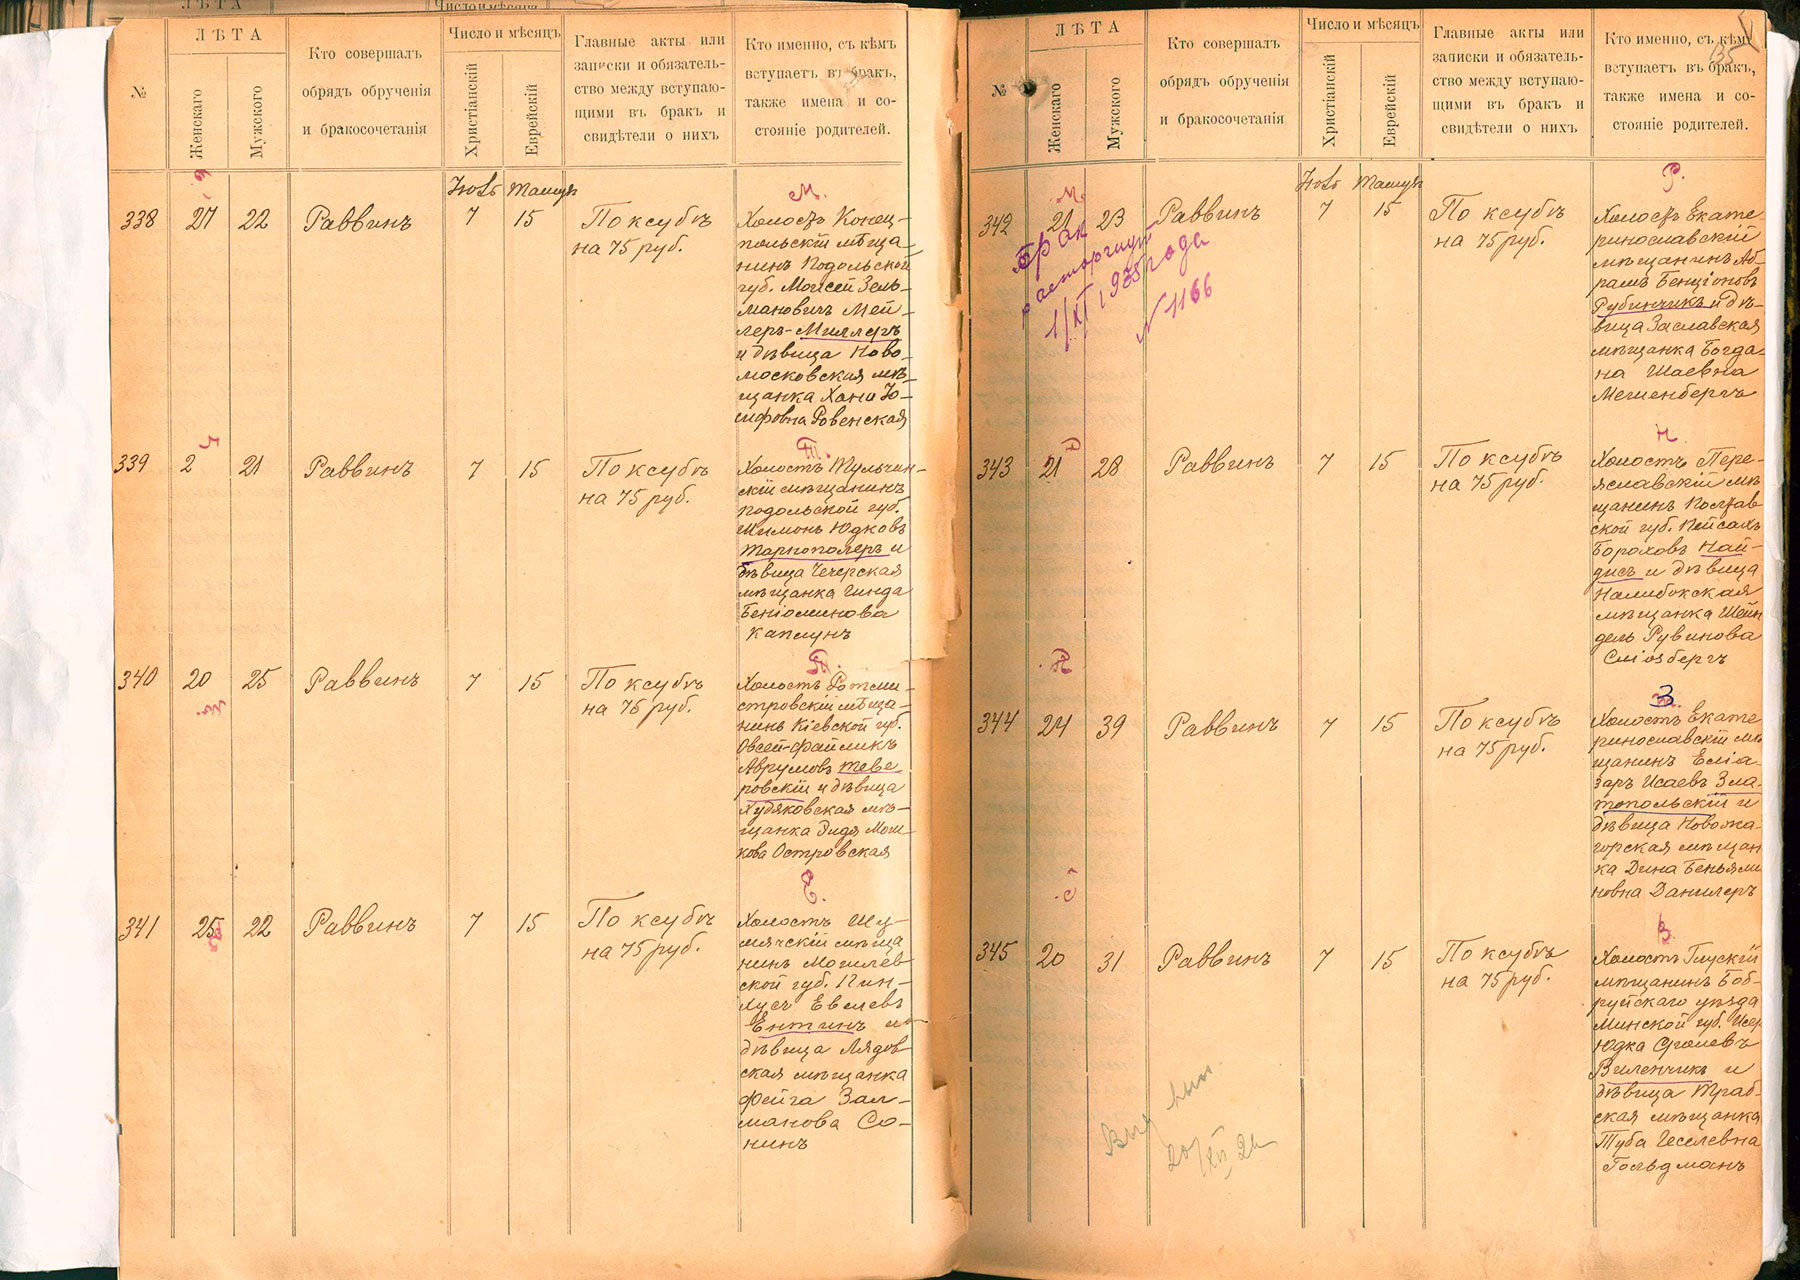 ЛѢТА
Число и мѣсяцъ
№
Женскаго
Мужского
Кто совершалъ
обрядъ обрученія
и бракосочетанія
Христіанскій
Еврейскій
Главные акты или
записки и обязатель-
ство между вступаю-
щими въ бракъ и
свидѣтели о нихъ
Кто именно, съ кѣмъ
вступаетъ въ бракъ,
также имена и со-
стояніе родителей.
338
22
Раввинъ
7
15
По ксубѣ
на 75 руб.
М.
Холостъ Конец-
польскій мѣща
нинъ Подольской
губ. Моисей Зель-
мановичъ Мей-
леръ-Миллеръ
и дѣвица Ново-
московская мѣ-
щанка Хана Іо-
сифовна Ровенская
339
2
21
Раввинъ
7
15
По ксубѣ
на 75 руб.
Т.
Холостъ Тульчин-
скій мѣщанинъ
Подольской губ.
Шимонъ Юдковъ
Тарнополеръ и
дѣвица Чечерская
мѣщанка Гинда
Беніоминова
Каплунъ
340
20
25
Раввинъ
7
15
По ксубѣ
на 75 руб.
Т.
Холостъ Ротми-
стровскій мѣща-
нинъ Кіевской губ.
Овсей-Файликъ
Аврумовъ Теве
ровскій и дѣвица
Худяковская мѣ-
щанка Эидя Мош-
кова Островская
341
25
22
Раввинъ
7
15
По ксубѣ
на 75 руб.
Е.
Холостъ Шу-
мячскій мѣща
нинъ Могилев
ской губ. Пин-
хусъ Евелевъ
Ентинъ и
дѣвица Лядов
ская мѣщанка
Фейга Зал-
манова Со-
нинъ
ЛѢТА
Число и мѣсяцъ
№
Женскаго
Мужского
Кто совершалъ
обрядъ обрученія
и бракосочетанія
Христіанскій
Еврейскій
Главные акты или
записки и обязатель-
ство между вступаю-
щими въ бракъ и
свидѣтели о нихъ
Кто именно, съ кѣмъ
вступаетъ въ бракъ,
также имена и со-
стояніе родителей.
135
342
21
23
Раввинъ
7
15
По ксубѣ
на 75 руб.
Р.
Холостъ Екате-
ринославскій
мѣщанинъ Аб-
рамъ Бенціоновъ
Рубинчикъ и дѣ-
вица Заславская
мѣщанка Богда-
на Шаевна
Мешенбергъ
Брак
расторгнут
1/XI 1935 года
N 1166
343
21
28
Раввинъ
7
15
По ксубѣ
на 75 руб.
Н.
Холостъ Пере-
яславскій мѣ
щанинъ Полтав
ской губ. Пейсахъ
Бороховъ Най-
дисъ и дѣвица
Налибокская
мѣщанка Шейн
дель Рувинова
Сліозбергъ
344
24
39
Раввинъ
7
15
По ксубѣ
на 75 руб.
З
Холостъ Екате
ринославскій мѣ
щанинъ Еліа-
заръ Исаевъ Зла-
топольскій и
дѣвица Новожа-
горская мѣщан
ка Дина Беньями
новна Данилеръ
345
20
31
Раввинъ
7
15
По ксубѣ
на 75 руб.
В.
Холостъ Глускій
мѣщанинъ Боб-
руйскаго уѣзда
Минской губ. Исер
Юдка Сролевъ
Виленчикъ и
дѣвица Траб-
ская мѣщанка
Туба Геселевна
Гольдманъ